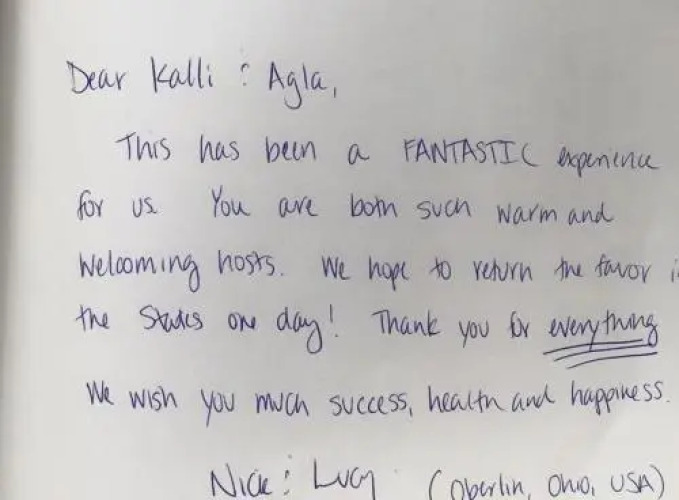 Dear Kalli & Agla,
This has been a FANTASTIC experience
for us. You are both such warm and
welcoming hosts. We hope to return the favor i
the States one day! Thank you for everything
We wish you much success, health and happiness.
Nick & Lucy (Oberlin, Ohio, USA)